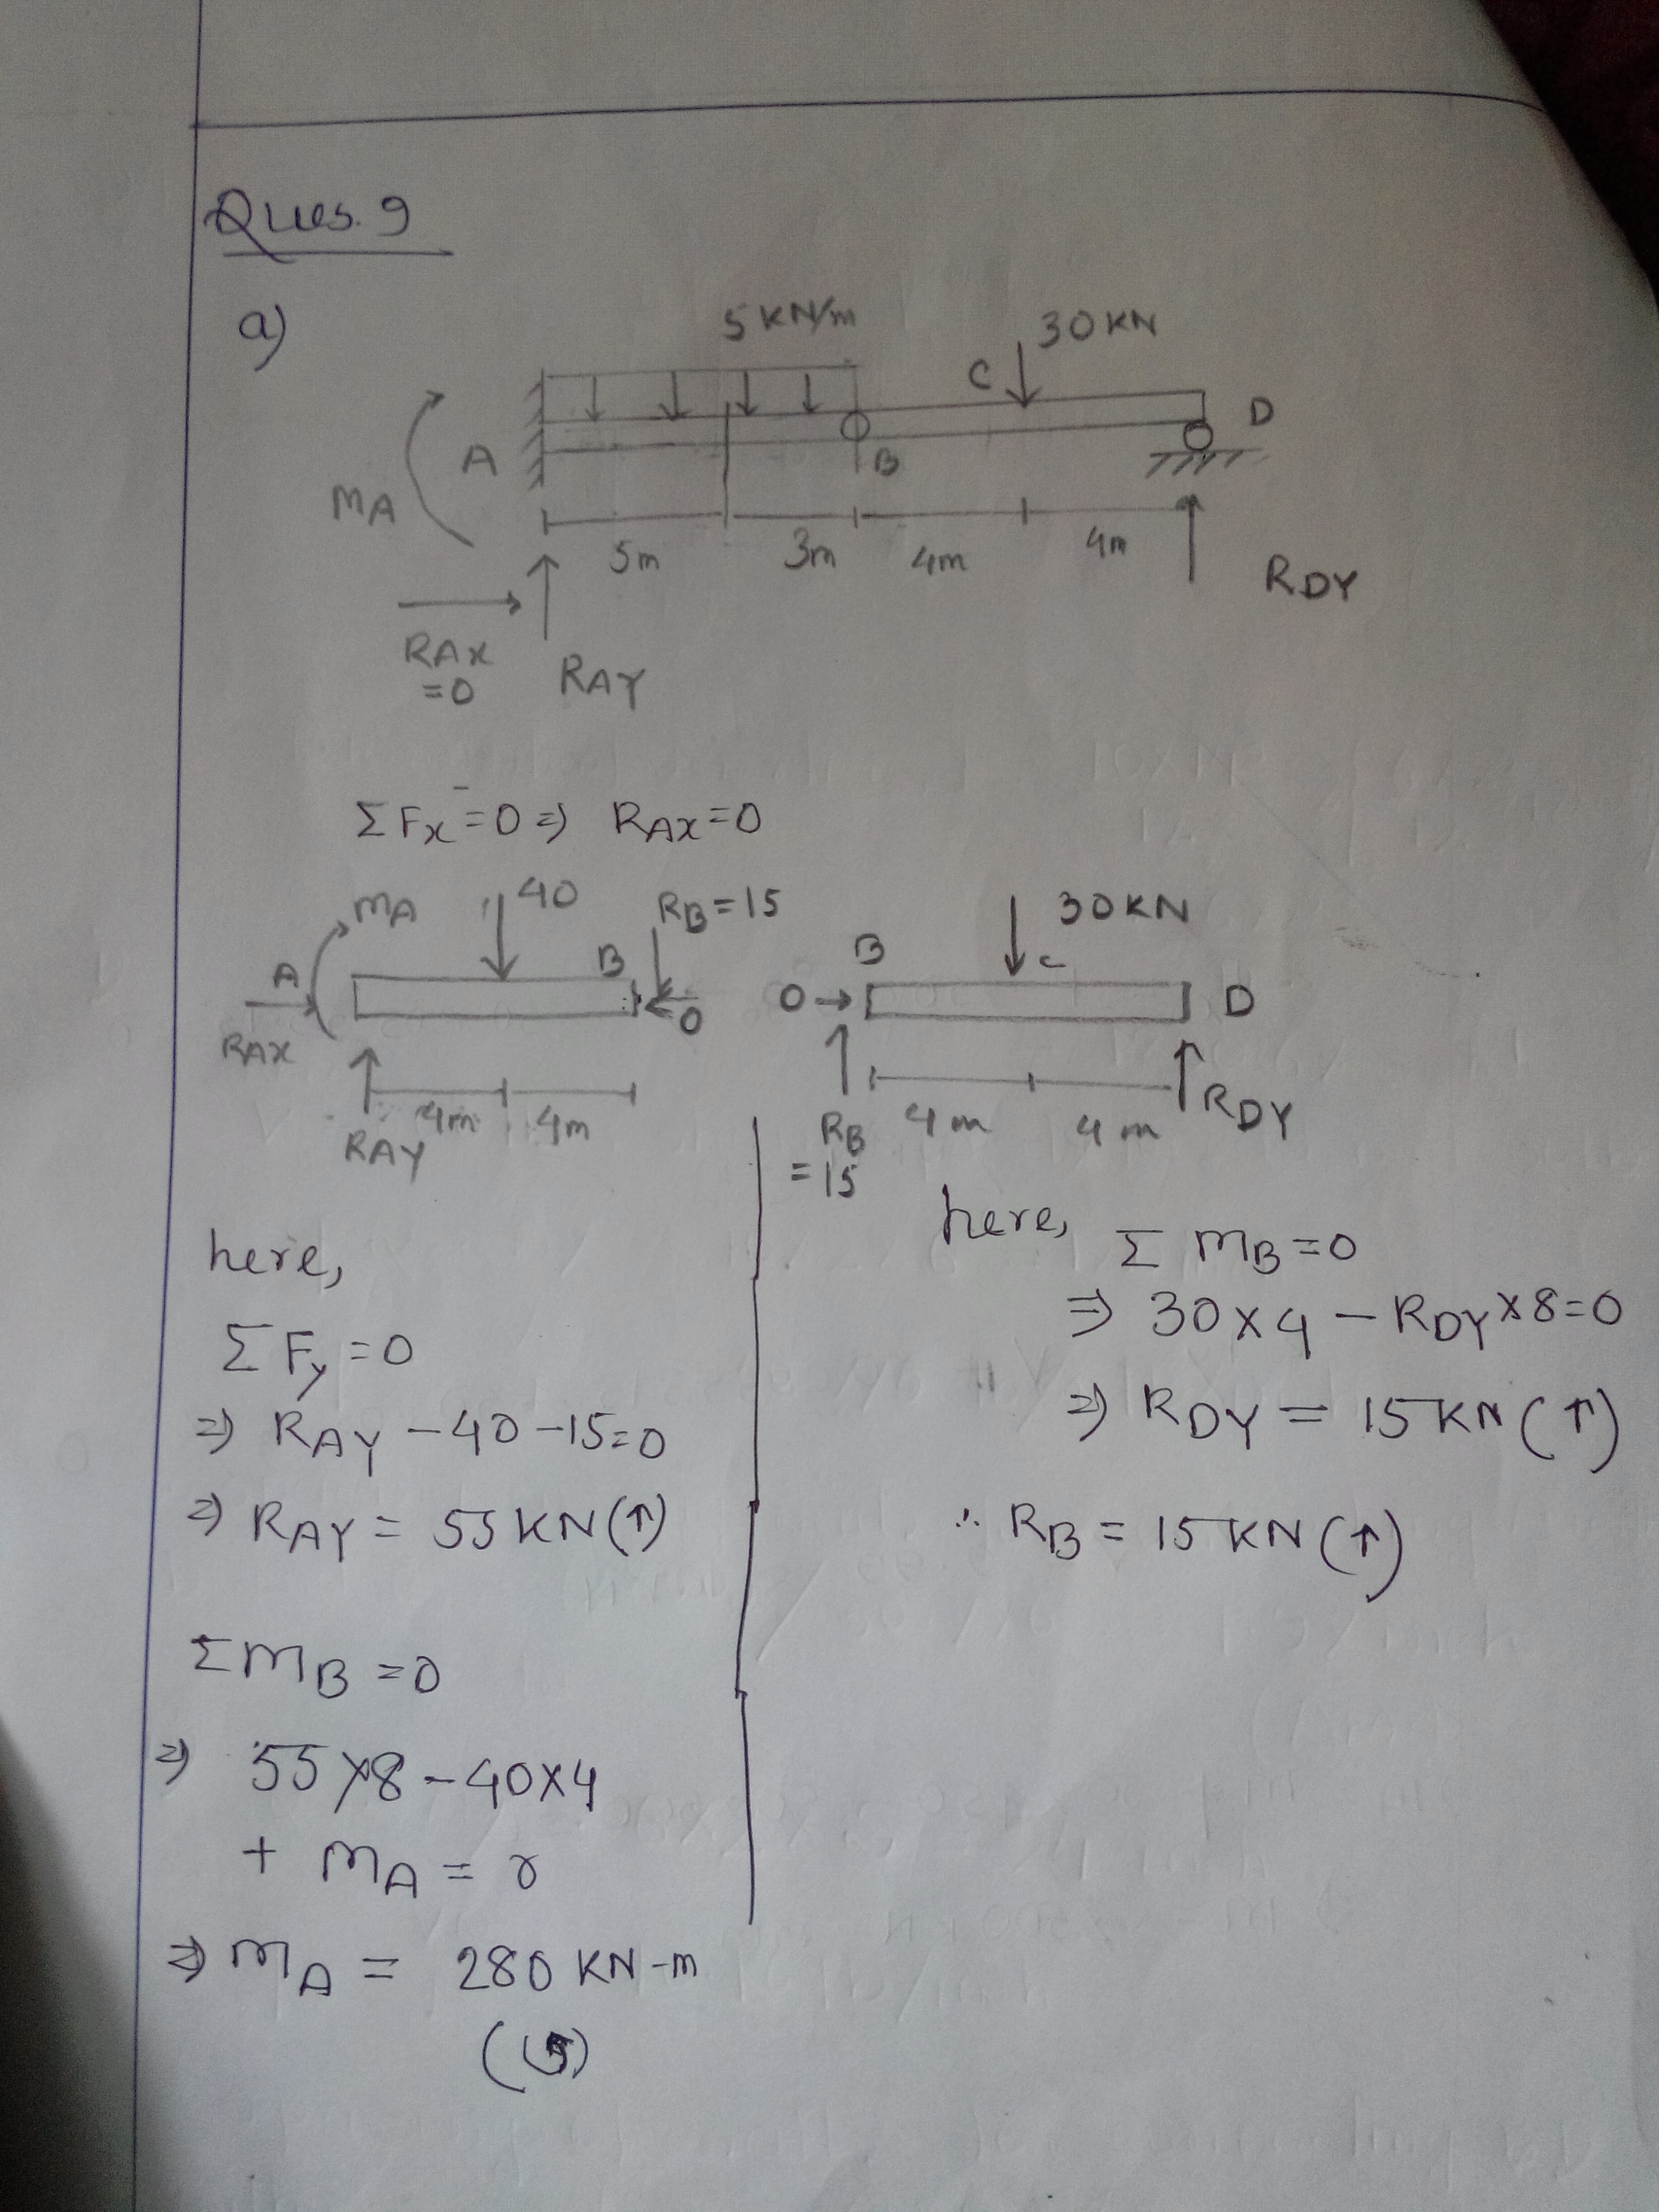 Ques. 9
a)
5 KN/m
30 KN
C
D
A
B
MA
5m
3m
4m
4m
RDY
RAX
=0
RAY
ΣFx=0 ⇒ RAX=0
MA
40
RB=15
A
B
0
RAX
4m
4m
RAY
30KN
B
C
0
D
4m
4m
RDY
RB
=15
here,
ΣFy=0
⇒ RAY -40 -15=0
⇒ RAY = 55 KN(↑)
ΣMB=0
⇒ 55×8 - 40×4
+ MA = 0
⇒ MA = 280 KN-m
(↺)
here, ΣMB=0
⇒ 30×4 - RDY×8=0
⇒ RDY = 15KN (↑)
∴ RB = 15 KN (↑)